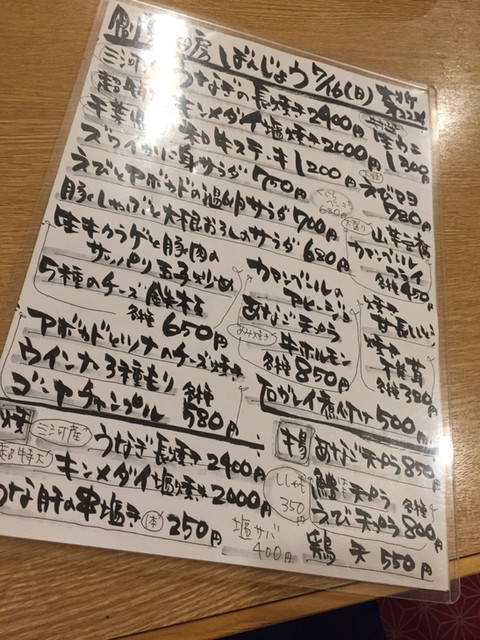 房 ばんじょう 7/16(日)
三河産 うなぎの長焼き 2400円
超特大 キンメダイ塩焼き 2000円
千葉県 和牛ステーキ 1200円
生ウニ 1200円
ズワイがに身サラダ 750円
えびマヨ 780円
えびとアボカドの温卵サラダ 700円
豚しゃぶと大根おろしのサラダ 680円
生キクラゲと豚肉の
サッパリ玉子炒め
5種のチーズ鉄板
各種 650円
アボカドとツナのチーズ焼き
ウインナ3種もり
ゴーヤチャンプル 各種 580円
カマンベールの
アヒージョ
あなご天プラ
牛ホルモン
各種 850円
カマンベール
フライ
各種 450円
各種 380円
500円
焼
三河産 うなぎ長焼き 2400円
超特大 キンメダイ塩焼き 2000円
うなぎ肝の串塩き 1本 250円
塩サバ 400円
揚 あなご天プラ 850円
ししゃも 350円
鱧天プラ
えび天プラ 各種 800円
鶏天 550円